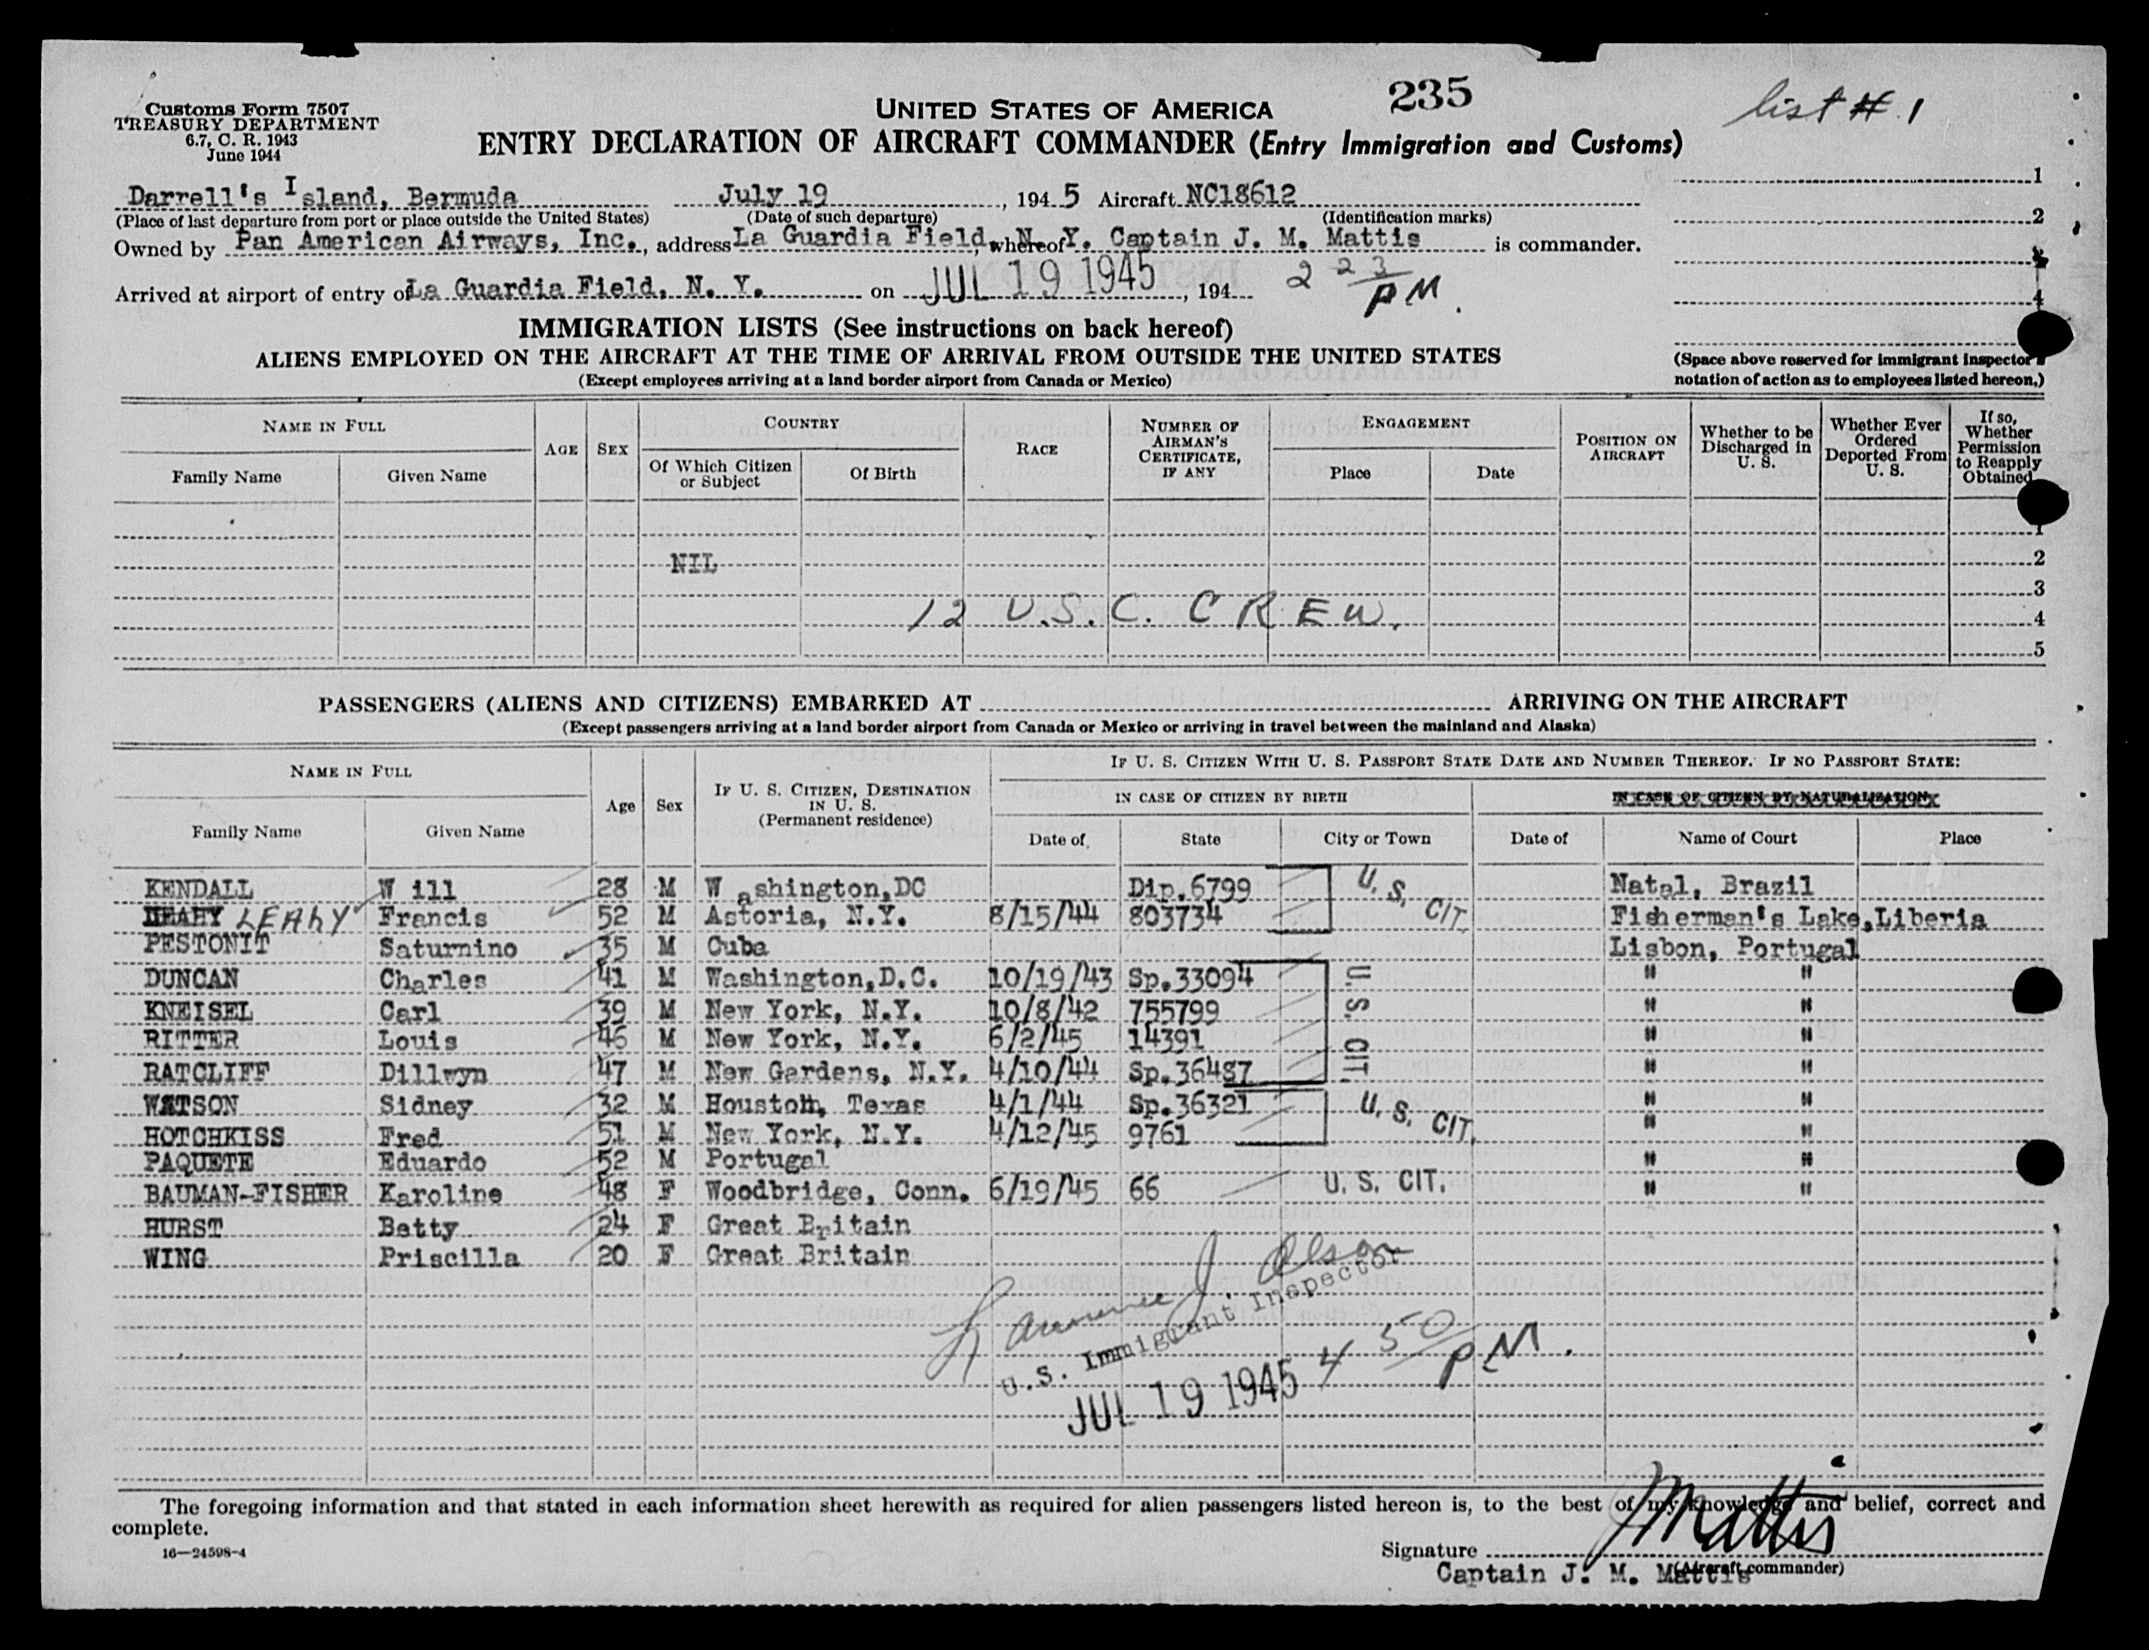 Customs Form 7507
TREASURY DEPARTMENT
6.7, C. R. 1943
June 1944
UNITED STATES OF AMERICA
235
list # 1
ENTRY DECLARATION OF AIRCRAFT COMMANDER (Entry Immigration and Customs)
Darrell's Island, Bermuda July 19, 1945 Aircraft NC18612
(Place of last departure from port or place outside the United States) (Date of such departure) (Identification marks)
Owned by Pan American Airways, Inc., address La Guardia Field, N. Y. whereof Captain J. M. Mattis is commander.
Arrived at airport of entry of La Guardia Field, N. Y. on JUL 19 1945, 194 2 23/PM.
1
2
3
4
IMMIGRATION LISTS (See instructions on back hereof)
ALIENS EMPLOYED ON THE AIRCRAFT AT THE TIME OF ARRIVAL FROM OUTSIDE THE UNITED STATES
(Except employees arriving at a land border airport from Canada or Mexico)
(Space above reserved for immigrant inspector's
notation of action as to employees listed hereon.)
NAME IN FULL
Family Name Given Name
AGE SEX
COUNTRY
Of Which Citizen or Subject Of Birth
RACE
NUMBER OF AIRMAN'S CERTIFICATE, IF ANY
ENGAGEMENT
Place Date
POSITION ON AIRCRAFT
Whether to be Discharged in U. S.
Whether Ever Ordered Deported From U. S.
If so, Whether Permission to Reapply Obtained
1
NIL 2
3
12 U.S.C. CREW. 4
5
PASSENGERS (ALIENS AND CITIZENS) EMBARKED AT ARRIVING ON THE AIRCRAFT
(Except passengers arriving at a land border airport from Canada or Mexico or arriving in travel between the mainland and Alaska)
NAME IN FULL
Family Name Given Name
Age Sex
IF U. S. CITIZEN, DESTINATION IN U. S.
(Permanent residence)
IF U. S. CITIZEN WITH U. S. PASSPORT STATE DATE AND NUMBER THEREOF. IF NO PASSPORT STATE:
IN CASE OF CITIZEN BY BIRTH IN CASE OF CITIZEN BY NATURALIZATION
Date of State City or Town Date of Name of Court Place
KENDALL Will 28 M Washington,DC Dip.6799 U.S. CIT. Natal, Brazil
LEAHY Francis 52 M Astoria, N.Y. 8/15/44 803734 Fisherman's Lake,Liberia
PESTONIT Saturnino 35 M Cuba Lisbon, Portugal
DUNCAN Charles 41 M Washington,D.C. 10/19/43 Sp.33094 U. S. CIT. " "
KNEISEL Carl 39 M New York, N.Y. 10/8/42 755799 " "
RITTER Louis 46 M New York, N.Y. 6/2/45 14391 " "
RATCLIFF Dillwyn 47 M New Gardens, N.Y. 4/10/44 Sp.36487 " "
WATSON Sidney 32 M Houston, Texas 4/1/44 Sp.36321 U. S. CIT. " "
HOTCHKISS Fred 51 M New York, N.Y. 4/12/45 9761 " "
PAQUETE Eduardo 52 M Portugal " "
BAUMAN-FISHER Karoline 48 F Woodbridge, Conn. 6/19/45 66 U. S. CIT. " "
HURST Betty 24 F Great Britain
WING Priscilla 20 F Great Britain
Lawrence J. Olson
U.S. Immigrant Inspector
JUL 19 1945 4 50/PM.
The foregoing information and that stated in each information sheet herewith as required for alien passengers listed hereon is, to the best of my knowledge and belief, correct and
complete.
16—24598-4
Signature J M Mattis
(Aircraft commander)
Captain J. M. Mattis